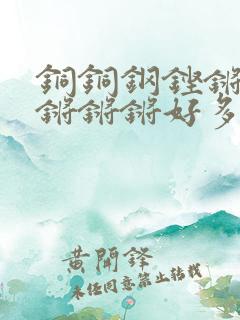 銅銅鋼鏗鏘
鏘鏘鏘好多
黃開鋒
未任同意禁止转载